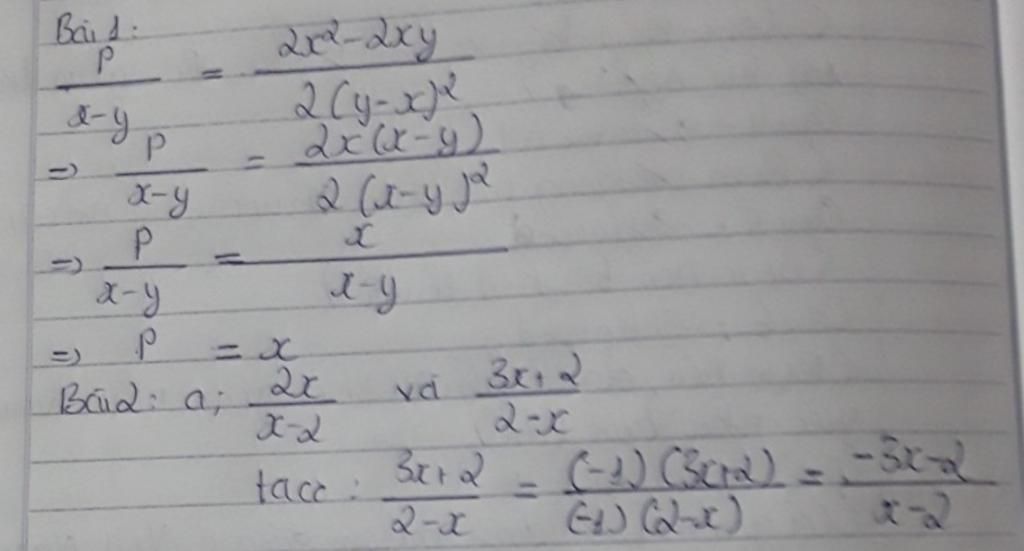 Bài 1:
P/(x-y) = (2x²-2xy)/(2(y-x)²)
=> P/(x-y) = (2x(x-y))/(2(x-y)²)
=> P/(x-y) = x/(x-y)
=> P = x
Bài 2: a; 2x/(x-2) và (3x+2)/(2-x)
tacc: (3x+2)/(2-x) = ((-1)(3x+2))/((-1)(2-x)) = (-3x-2)/(x-2)